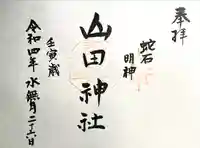 奉拝
蛇石
明神
山田神社
壬寅歳
令和四年水無月二十六日